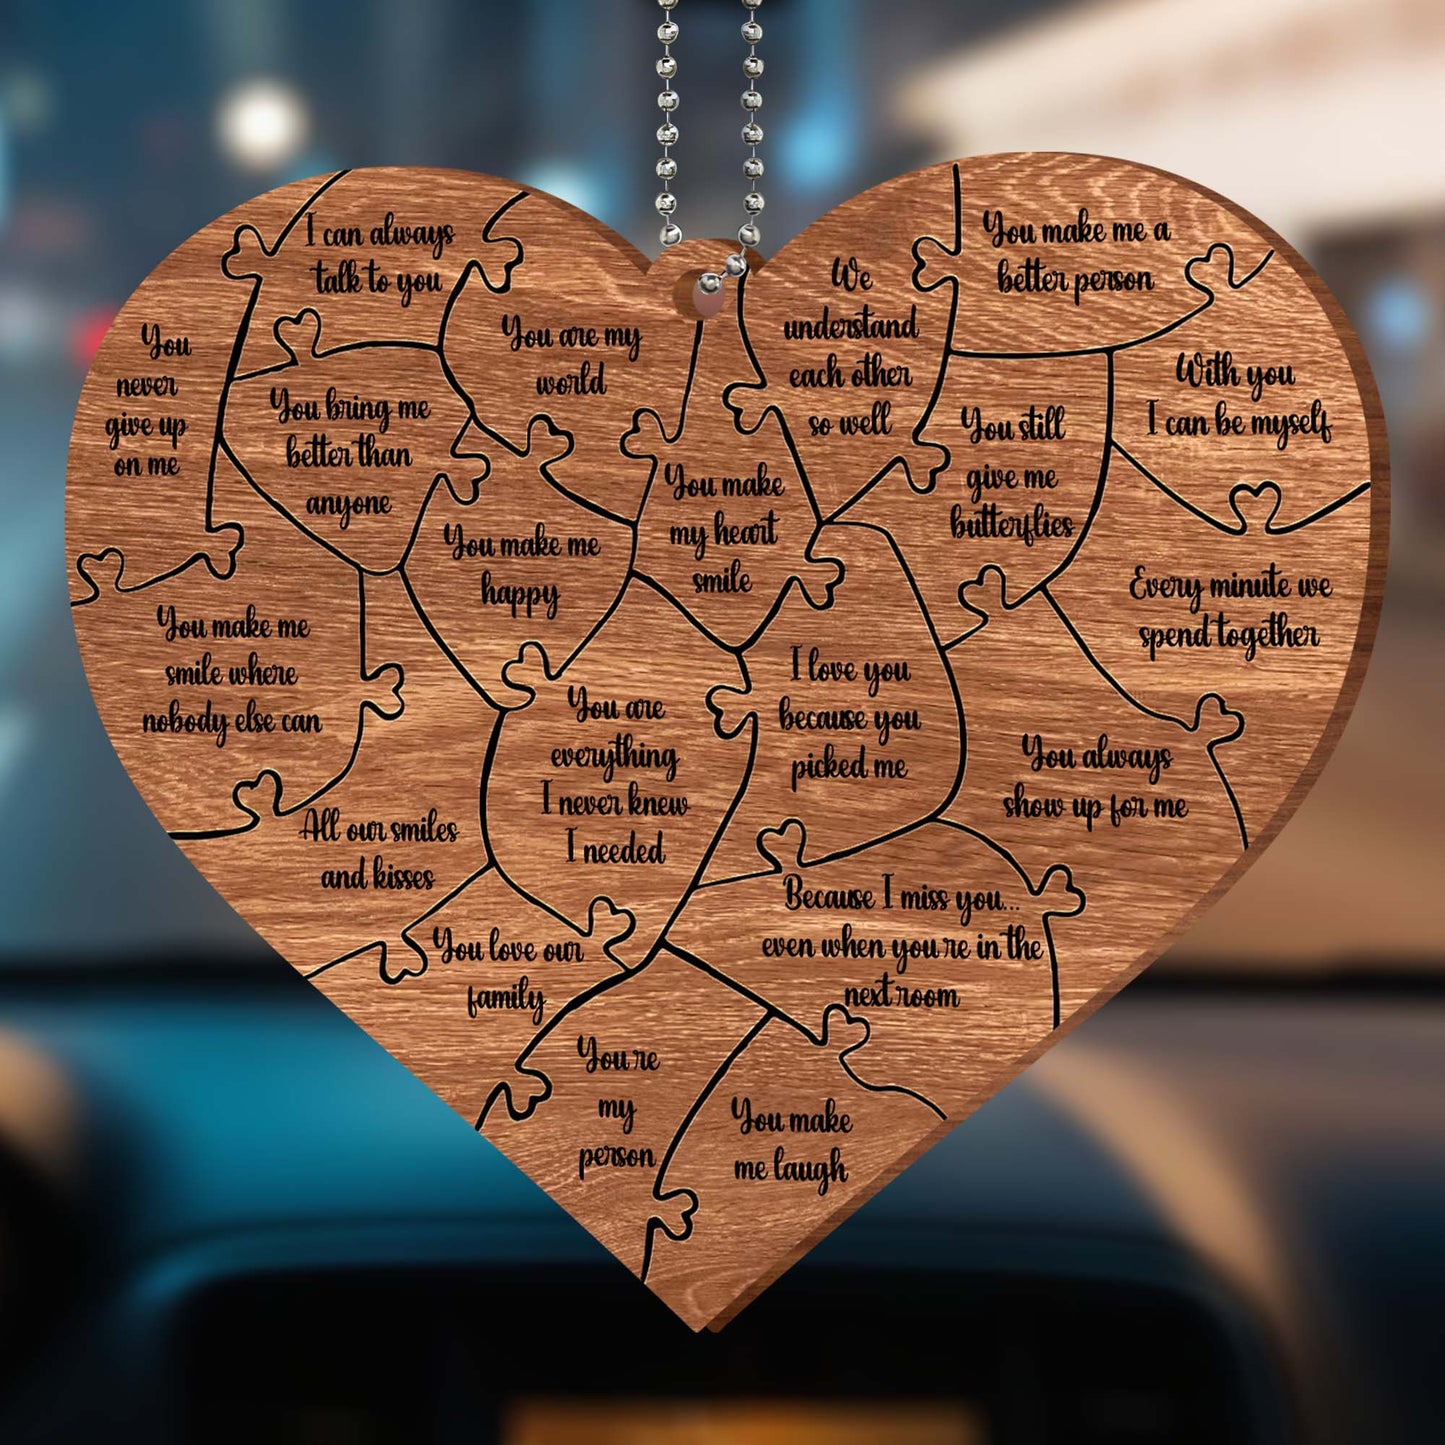 I can always
talk to you
You make me a
better person
We
understand
each other
so well
You
never
give up
on me
You are my
world
With you
I can be myself
You bring me
better than
anyone
You still
give me
butterflies
You make
my heart
smile
You make me
happy
Every minute we
spend together
You make me
smile where
nobody else can
I love you
because you
picked me
You are
everything
I never knew
I needed
You always
show up for me
All our smiles
and kisses
Because I miss you...
even when you're in the
next room
You love our
family
You're
my
person
You make
me laugh